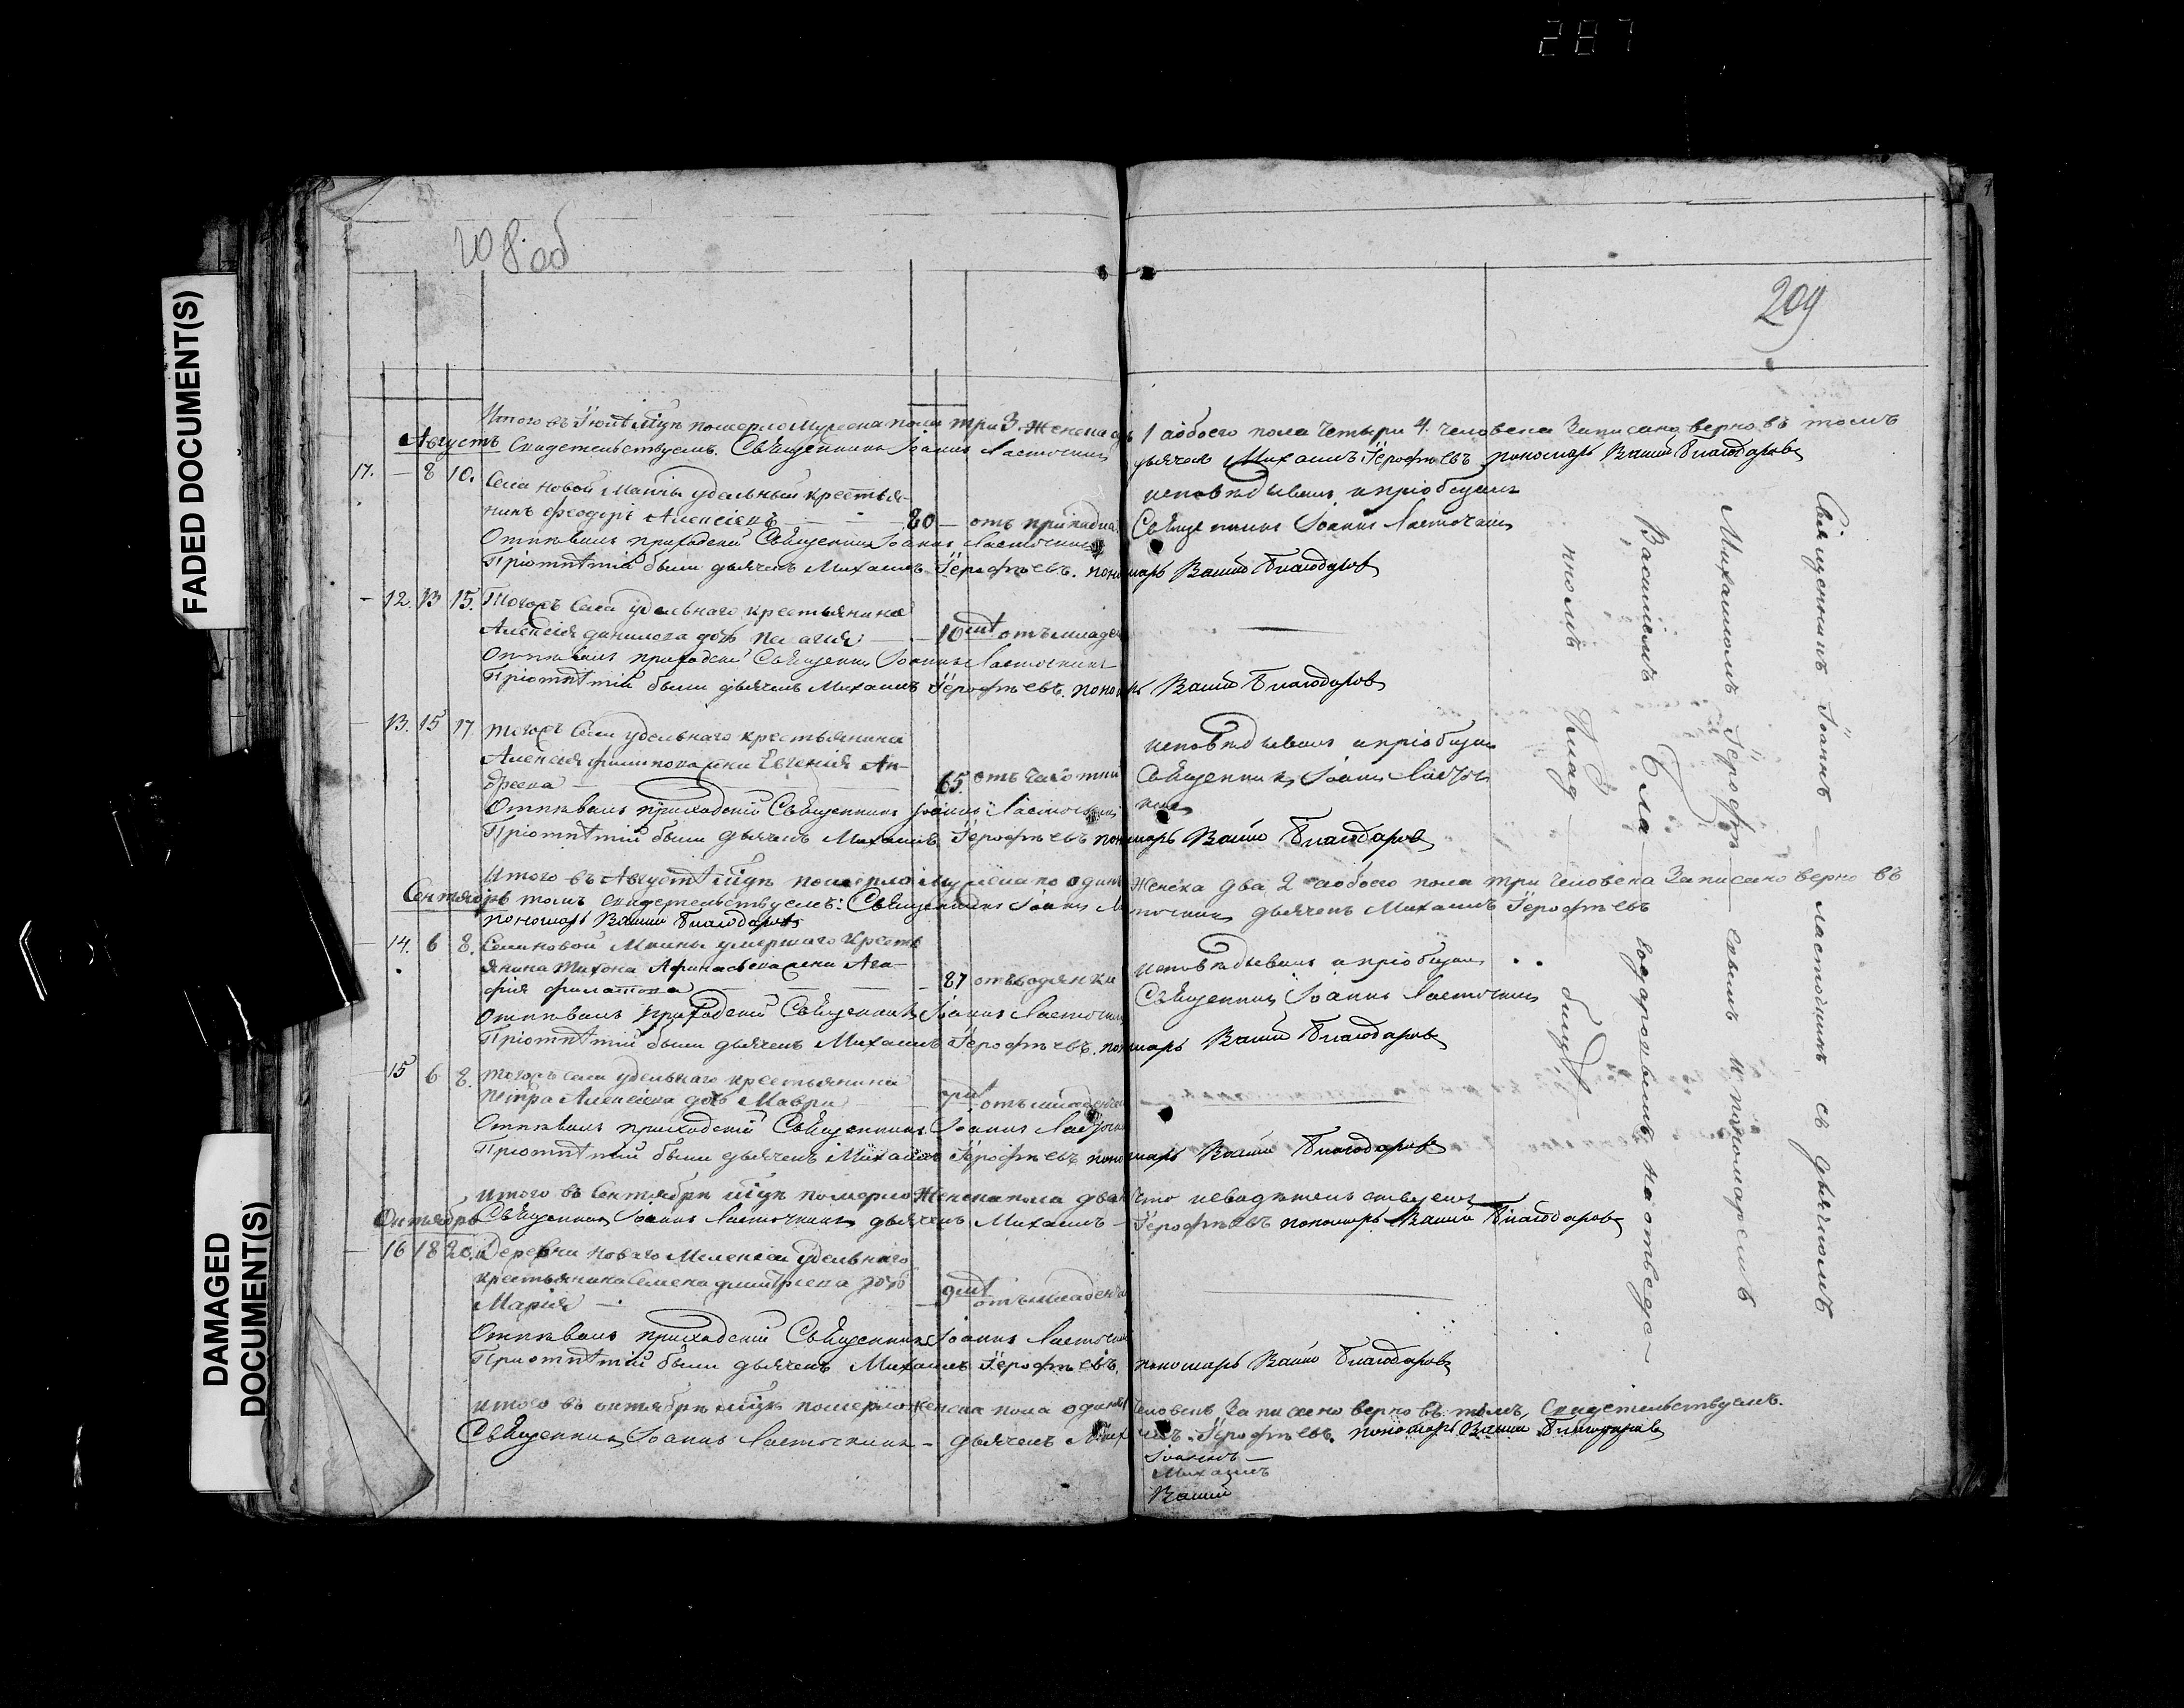 287
FADED DOCUMENT(S)
DAMAGED DOCUMENT(S)
208 об
209
Итого въ Іюлѣ мцѣ померло Мужеска пола три 3. Женска 1 а обоего пола четыри 4. человека Записано верно, въ томъ
Августъ
Свидетельствуемъ. Священникъ Іоаннъ Ласточкинъ дьячекъ Михаилъ Іерофѣевъ пономарь Василий Благодаровъ
17. — 8 10. Села новой Маины удельный крестья-
нинъ Феодоръ Алексіевъ — 80 — отъ припадка исповѣдывалъ и пріобщалъ
Священникъ Іоаннъ Ласточкинъ
Отпѣвалъ приходский Священникъ Іоаннъ Ласточкинъ
Пріотпѣтіи были дьячекъ Михаилъ Іерофѣевъ. пономарь Василий Благодаровъ
— 12. 13 15. Тогожъ Села удельнаго крестьянина
Алексія данилова дочь Пелагия — 10 мцъ отъ младен
Отпѣвалъ приходский Священникъ Іоаннъ Ласточкинъ
Пріотпѣтіи были дьячекъ Михаилъ Іерофѣевъ. пономарь Василий Благодаровъ
— 13. 15 17 Тогожъ Села удельнаго крестьянина
Алексія филипова жена Евгенія Ан-
дреева — 65. отъ чахотки исповѣдывалъ и пріобщалъ
Священникъ Іоаннъ Ласточ
кинъ
Отпѣвалъ приходский Священникъ Іоаннъ Ласточкинъ
Пріотпѣтіи были дьячекъ Михаилъ Іерофѣевъ пономарь Василий Благодаровъ
Итого въ Августѣ мцѣ померло Мужеска по одинъ Женска два 2 а обоего пола три человека Записано верно въ
Сентябрь
томъ свидетельствуемъ: Священникъ Іоаннъ Ласточкинъ дьячекъ Михаилъ Іерофѣевъ
пономарь Василий Благодаровъ
— 14. 6 8. Села новой Маины умершаго крест
янина Тихона Афанасьева жена Ага-
фия филатова — 87 отъ одышки исповѣдывалъ и пріобщалъ
Священникъ Іоаннъ Ласточкинъ
Отпѣвалъ приходский Священникъ Іоаннъ Ласточкинъ
Пріотпѣтіи были дьячекъ Михаилъ Іерофѣевъ. пономарь Василий Благодаровъ
— 15 6 8. Тогожъ села удельнаго крестьянина
Петра Алексіева дочь Мавра — отъ младенче
Отпѣвалъ приходский Священникъ Іоаннъ Ласточкинъ
Пріотпѣтіи были дьячекъ Михаилъ Іерофѣевъ пономарь Василий Благодаровъ
Итого въ Сентябрѣ мцѣ померло Женска пола два
Октябрь
Священникъ Іоаннъ Ласточкинъ дьячекъ Михаилъ Іерофѣевъ пономарь Василий Благодаровъ
— 16 18 20. Деревни новаго удельнаго
крестьянина Семена димитриева дочь
Марія — 9 мцъ отъ младенч
Отпѣвалъ приходский Священникъ Іоаннъ Ласточкинъ
При отпѣтіи были дьячекъ Михаилъ Іерофѣевъ. пономарь Василий Благодаровъ
итого въ октябрѣ мцѣ померло женска пола одинъ человекъ Записано верно въ томъ, Свидетельствуемъ.
Священникъ Іоаннъ Ласточкинъ — дьячекъ Михаилъ Іерофѣевъ. пономарь Василий Благодаровъ
Іоаннъ —
Михаилъ
Василий
Священникъ Іоаннъ — Ласточкинъ съ дьячкомъ
Михаиломъ Іерофѣ — евымъ и пономаремъ
Василіемъ Бла — годаровымъ